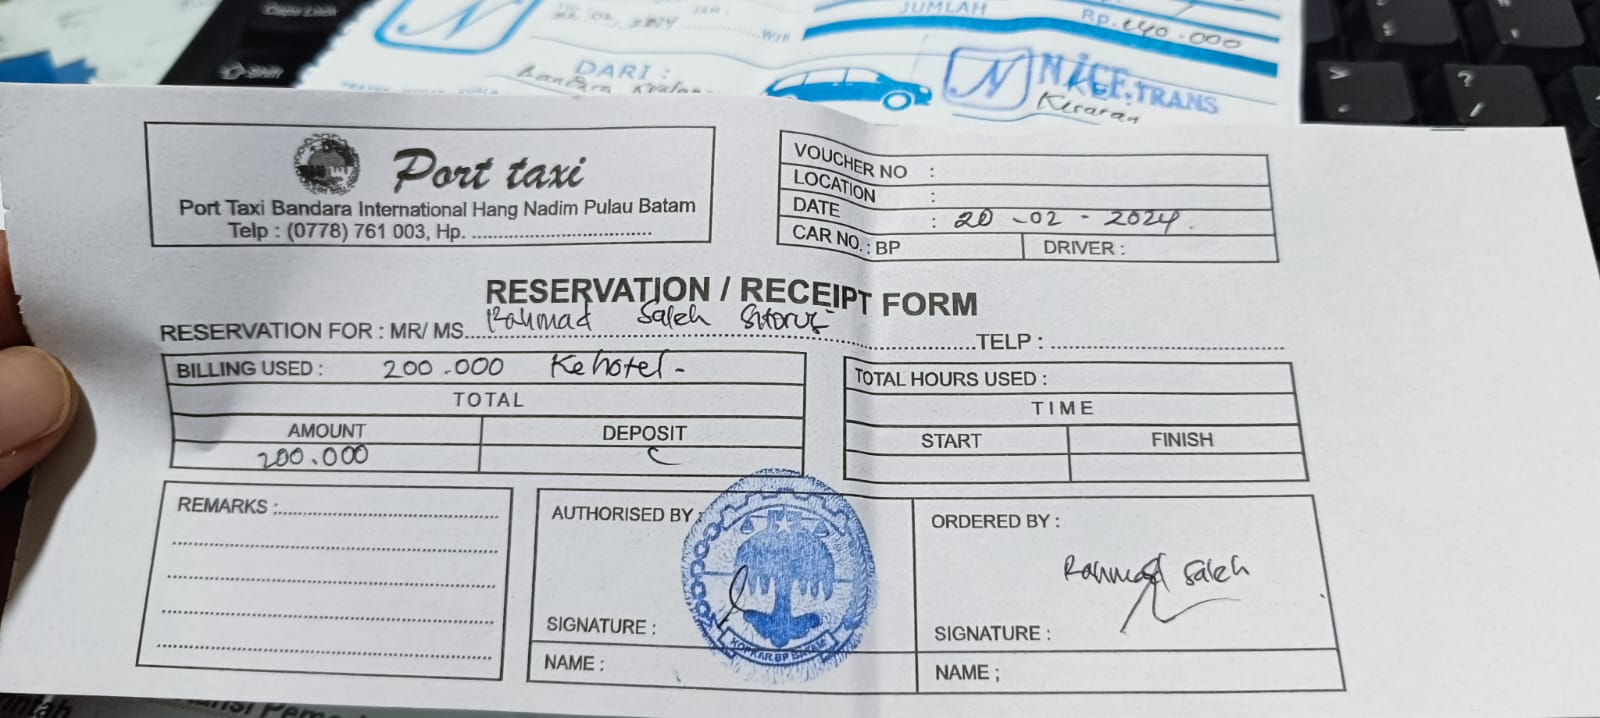 Caps Lock
Shift
22.02.2024
WIB
JUMLAH
Rp. 240.000
DARI :
Bandara
NICE TRANS
Port taxi
Port Taxi Bandara International Hang Nadim Pulau Batam
Telp : (0778) 761 003, Hp. ........................................
VOUCHER NO :
LOCATION :
DATE : 20 - 02 - 2024.
CAR NO. : BP DRIVER :
RESERVATION / RECEIPT FORM
RESERVATION FOR : MR/ MS. Rahmad Saleh Sitorus TELP :
BILLING USED : 200.000 Ke hotel -
TOTAL
AMOUNT DEPOSIT
200.000
TOTAL HOURS USED :
TIME
START FINISH
REMARKS :
AUTHORISED BY :
SIGNATURE :
NAME :
KOPKAR BP BATAM
ORDERED BY :
Rahmad Saleh
SIGNATURE :
NAME ;